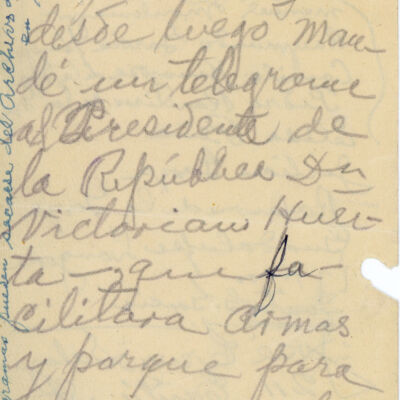 desde luego man-
dé un telegrama
al Presidente de
la República Dn
Victoriano Huer-
ta - que fa-
cilitara armas
y parque para
gramas pueden sacarse del Archivo